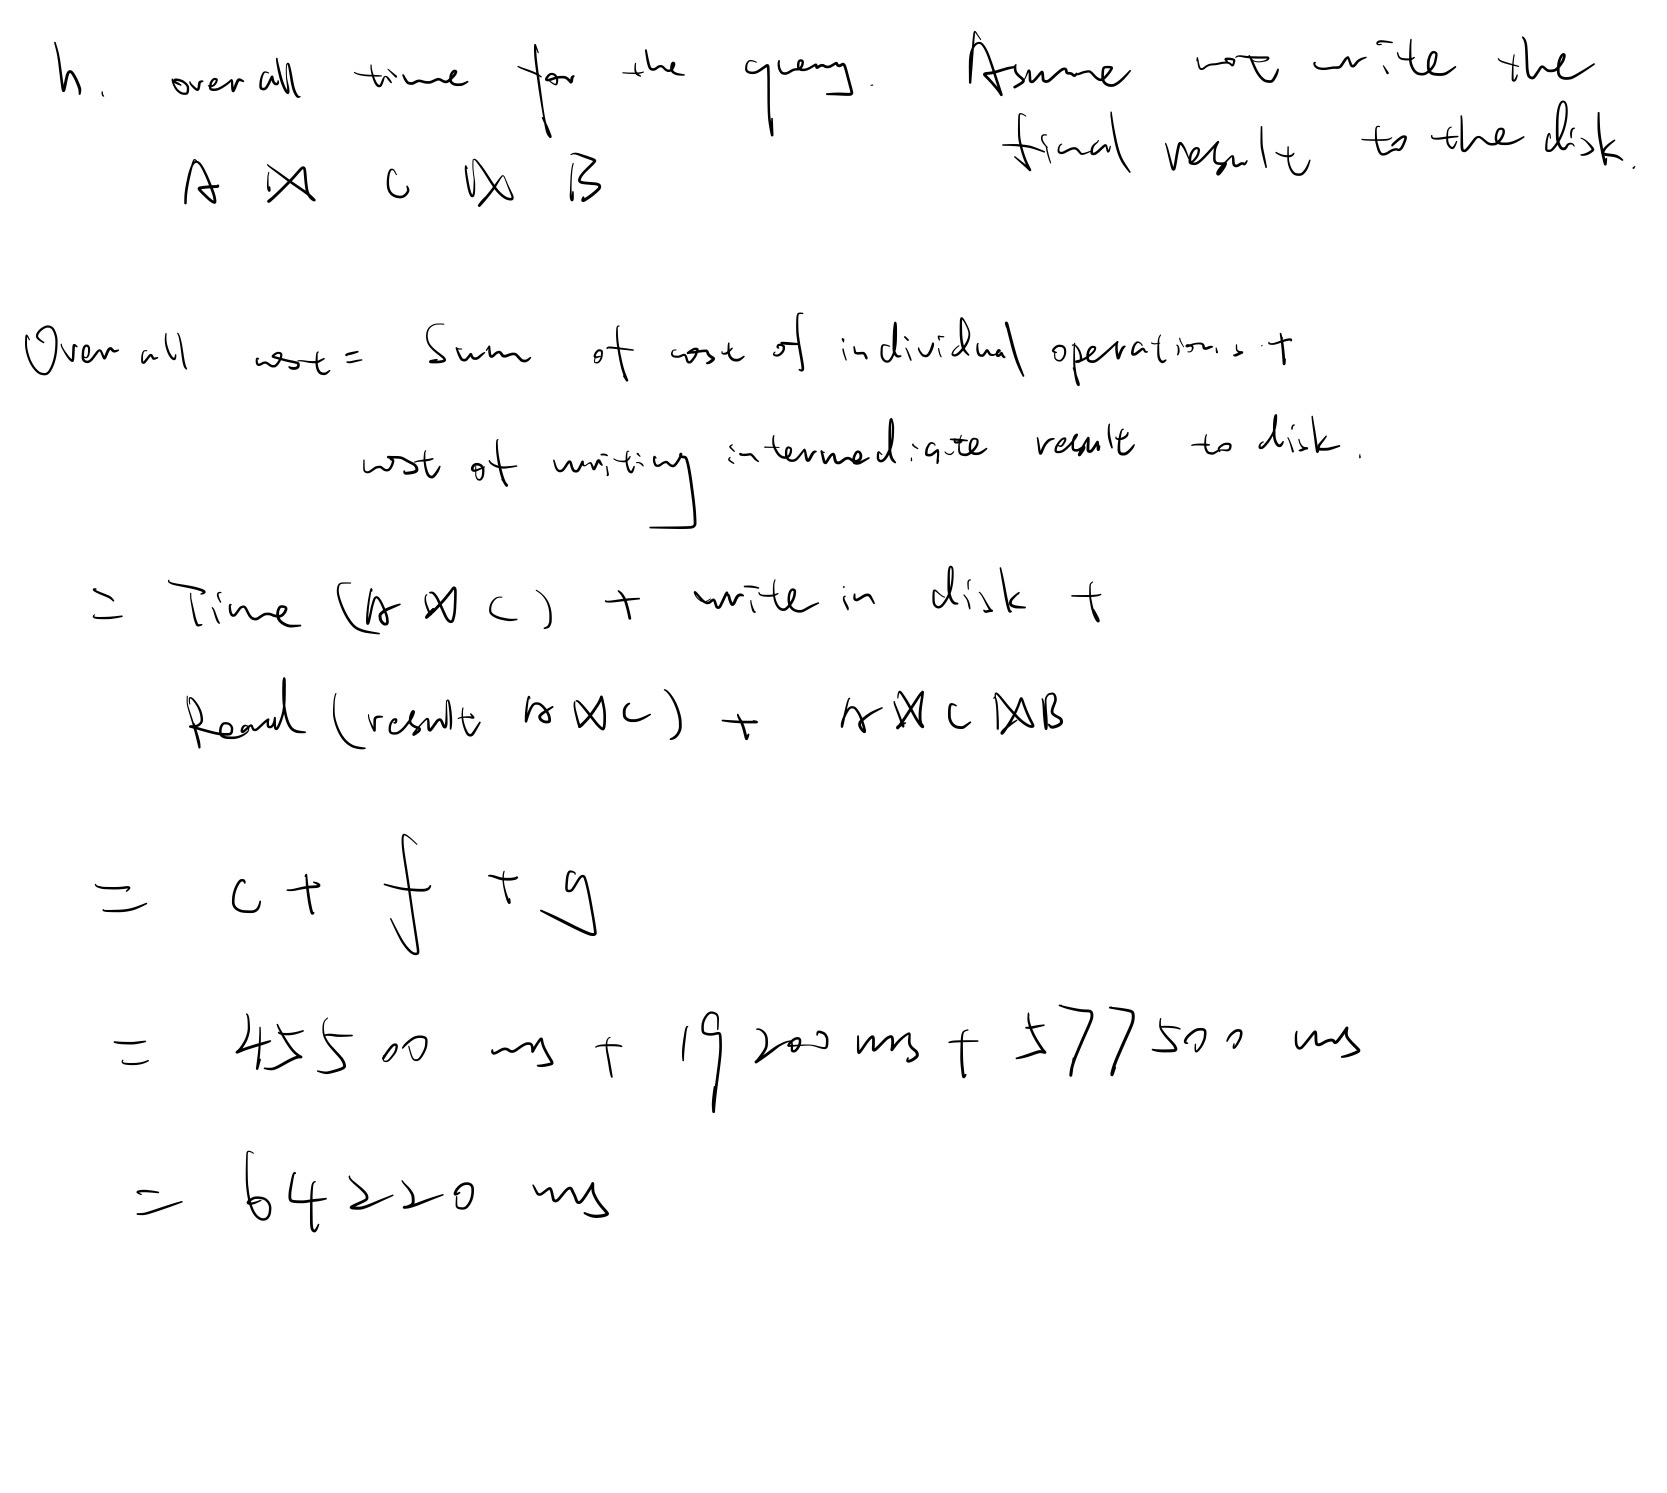 h. over all time for the query. Assume not write the
final result to the disk.
A ⋈ C ⋈ B
Over all cost = Sum of cost of individual operations +
cost of writing intermediate result to disk.
= Time (A ⋈ C) + write in disk +
Read (result A ⋈ C) + A ⋈ C ⋈ B
= c + f + g
= 45500 ms + 19200 ms + 577500 ms
= 64220 ms